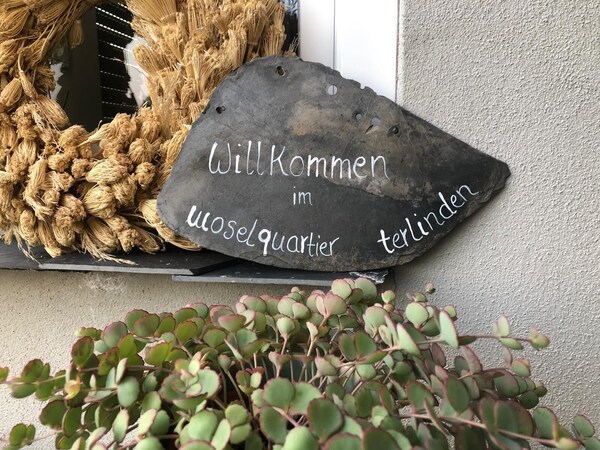 Willkommen
im
Moselquartier terlinden